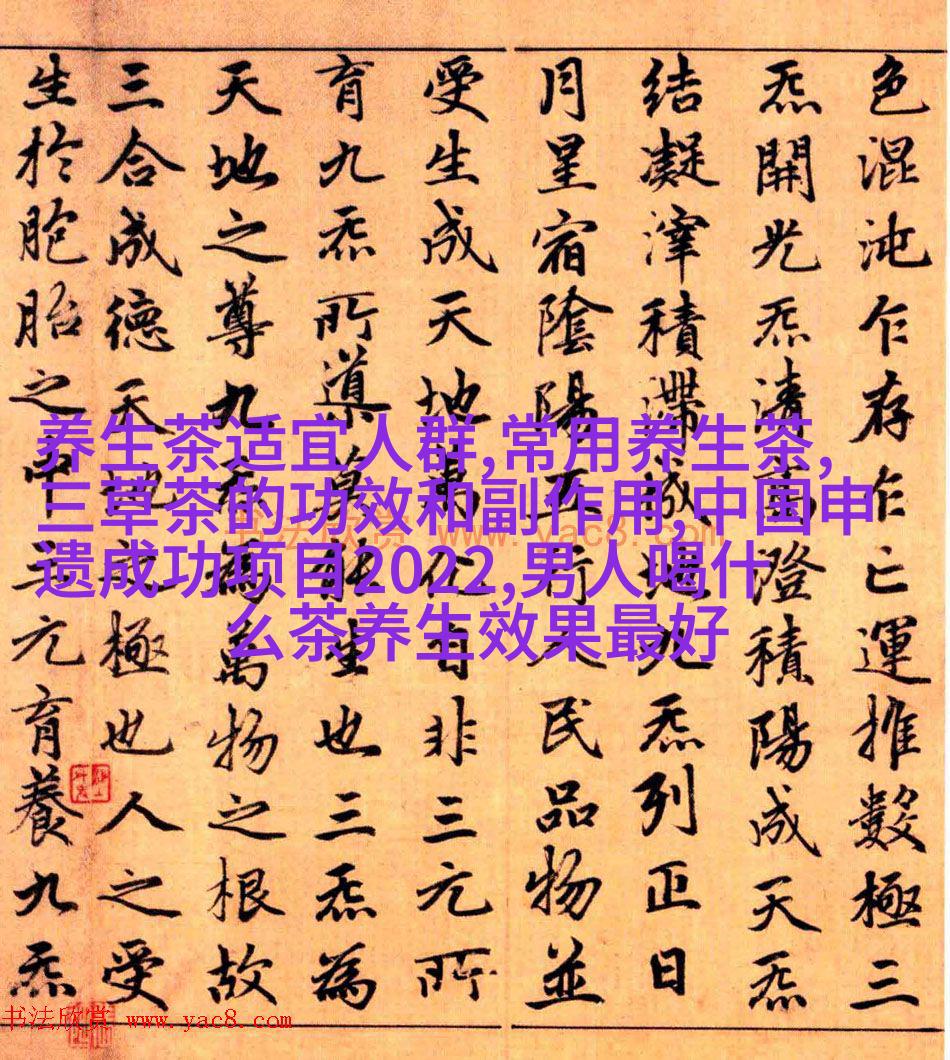 色混沌乍存乍亡運推數極三
炁開光炁清高澄積陽成天炁
結凝滓積滯成地九炁列正日
月星宿陰陽五行人民品物並
受生成天地萬化自非三元所
育九炁所導莫能生也三炁為
天地之尊九炁為萬物之根故
三合成德天地之極也人之受
生於胞胎之中三元育養九炁
养生茶适宜人群,常用养生茶,
三草茶的功效和副作用,中国申
遗成功项目2022,男人喝什
么茶养生效果最好
书法欣赏 www.yac8.com
书法欣赏 www.yac8.com